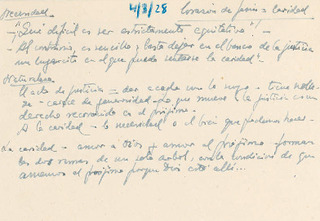 4/8/28 Corazón de Jesús = Caridad
- "Qué difícil es ser estrictamente equitativo!" -
- Al contrario, es sencillo; basta dejar en el banco de la justicia
un huequecito en el que pueda sentarse la caridad".
Naturaleza
El acto de justicia - dar a cada uno lo suyo - tiene
carece de generosidad - Lo que mueve a la justicia es un
derecho reconocido en el prójimo -
A la caridad - la necesidad o el bien que podemos hacer -
La caridad - amor a Dios y amor al prójimo - forman
las dos ramas de un solo árbol, con la condición de que
amemos al prójimo porque Dios está allí...